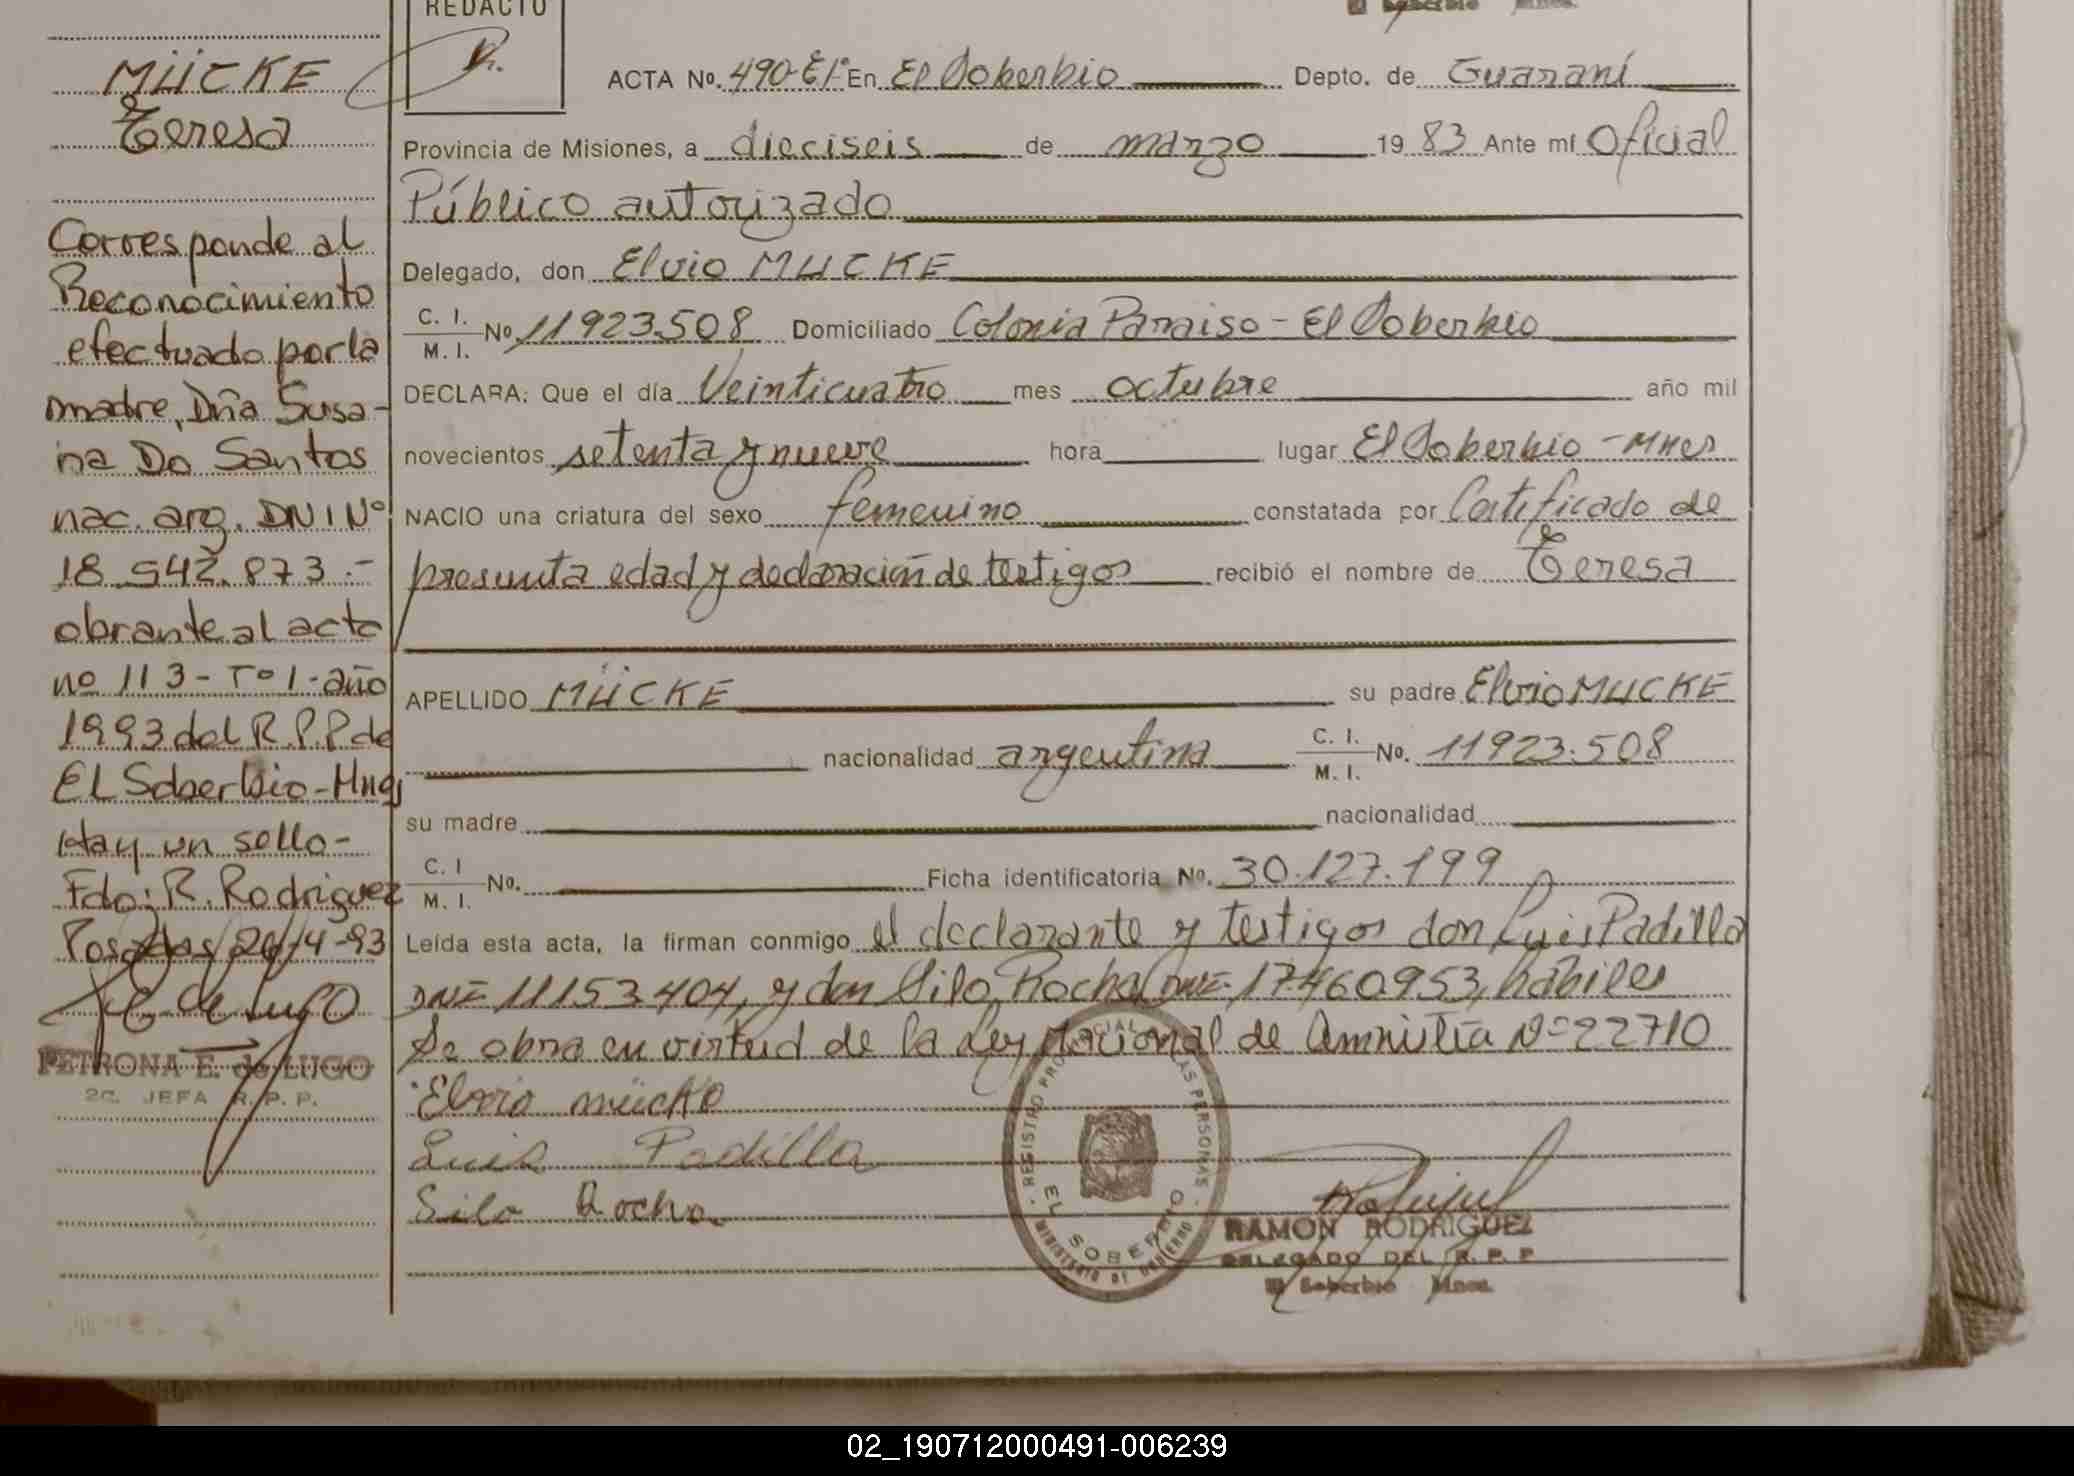 REDACTO
El Soberbio Mnes.
MÜCKE
Teresa
Corresponde al
Reconocimiento
efectuado por la
madre, Dña Susa-
na Do Santos
nac. arg. DNI Nº
18.542.873.-
obrante al acta
nº 113-Tº1-año
1993 del R.P.P de
EL Soberbio-Mnes
Hay un sello-
Fdo: R. Rodriguez
Posadas 26-4-93
PETRONA E. de LUGO
2a. JEFA R. P. P.
ACTA Nº. 490-E1º En El Soberbio Depto. de Guaraní
Provincia de Misiones, a dieciseis de marzo 19 83 Ante mí Oficial
Público autorizado
Delegado, don Elvio MUCKE
C. I.
M. I. Nº 11923.508 Domiciliado Colonia Paraiso - El Soberbio
DECLARA: Que el día Veinticuatro mes octubre año mil
novecientos setenta y nueve hora lugar El Soberbio - Mnes
NACIO una criatura del sexo femenino constatada por Certificado de
presunta edad y declaración de testigos recibió el nombre de Teresa
APELLIDO MÜCKE su padre Elvio MUCKE
nacionalidad argentina C. I.
M. I. Nº. 11923.508
su madre nacionalidad
C. I
M. I. Nº. Ficha identificatoria Nº. 30.127.199
Leída esta acta, la firman conmigo el declarante y testigos don Luis Padilla
DNI= 11153404, y don Silo Rocha DNI= 17460953, hábiles
Se obra en virtud de la Ley Nacional de Amnistía Nº 22710
Elvio mücke
Luis Padilla
Silo Rocha
REGISTRO PROVINCIAL DE LAS PERSONAS
EL SOBERBIO
MINISTERIO DE GOBIERNO
RAMON RODRIGUEZ
DELEGADO DEL R. P. P
El Soberbio Mnes.
02_190712000491-006239